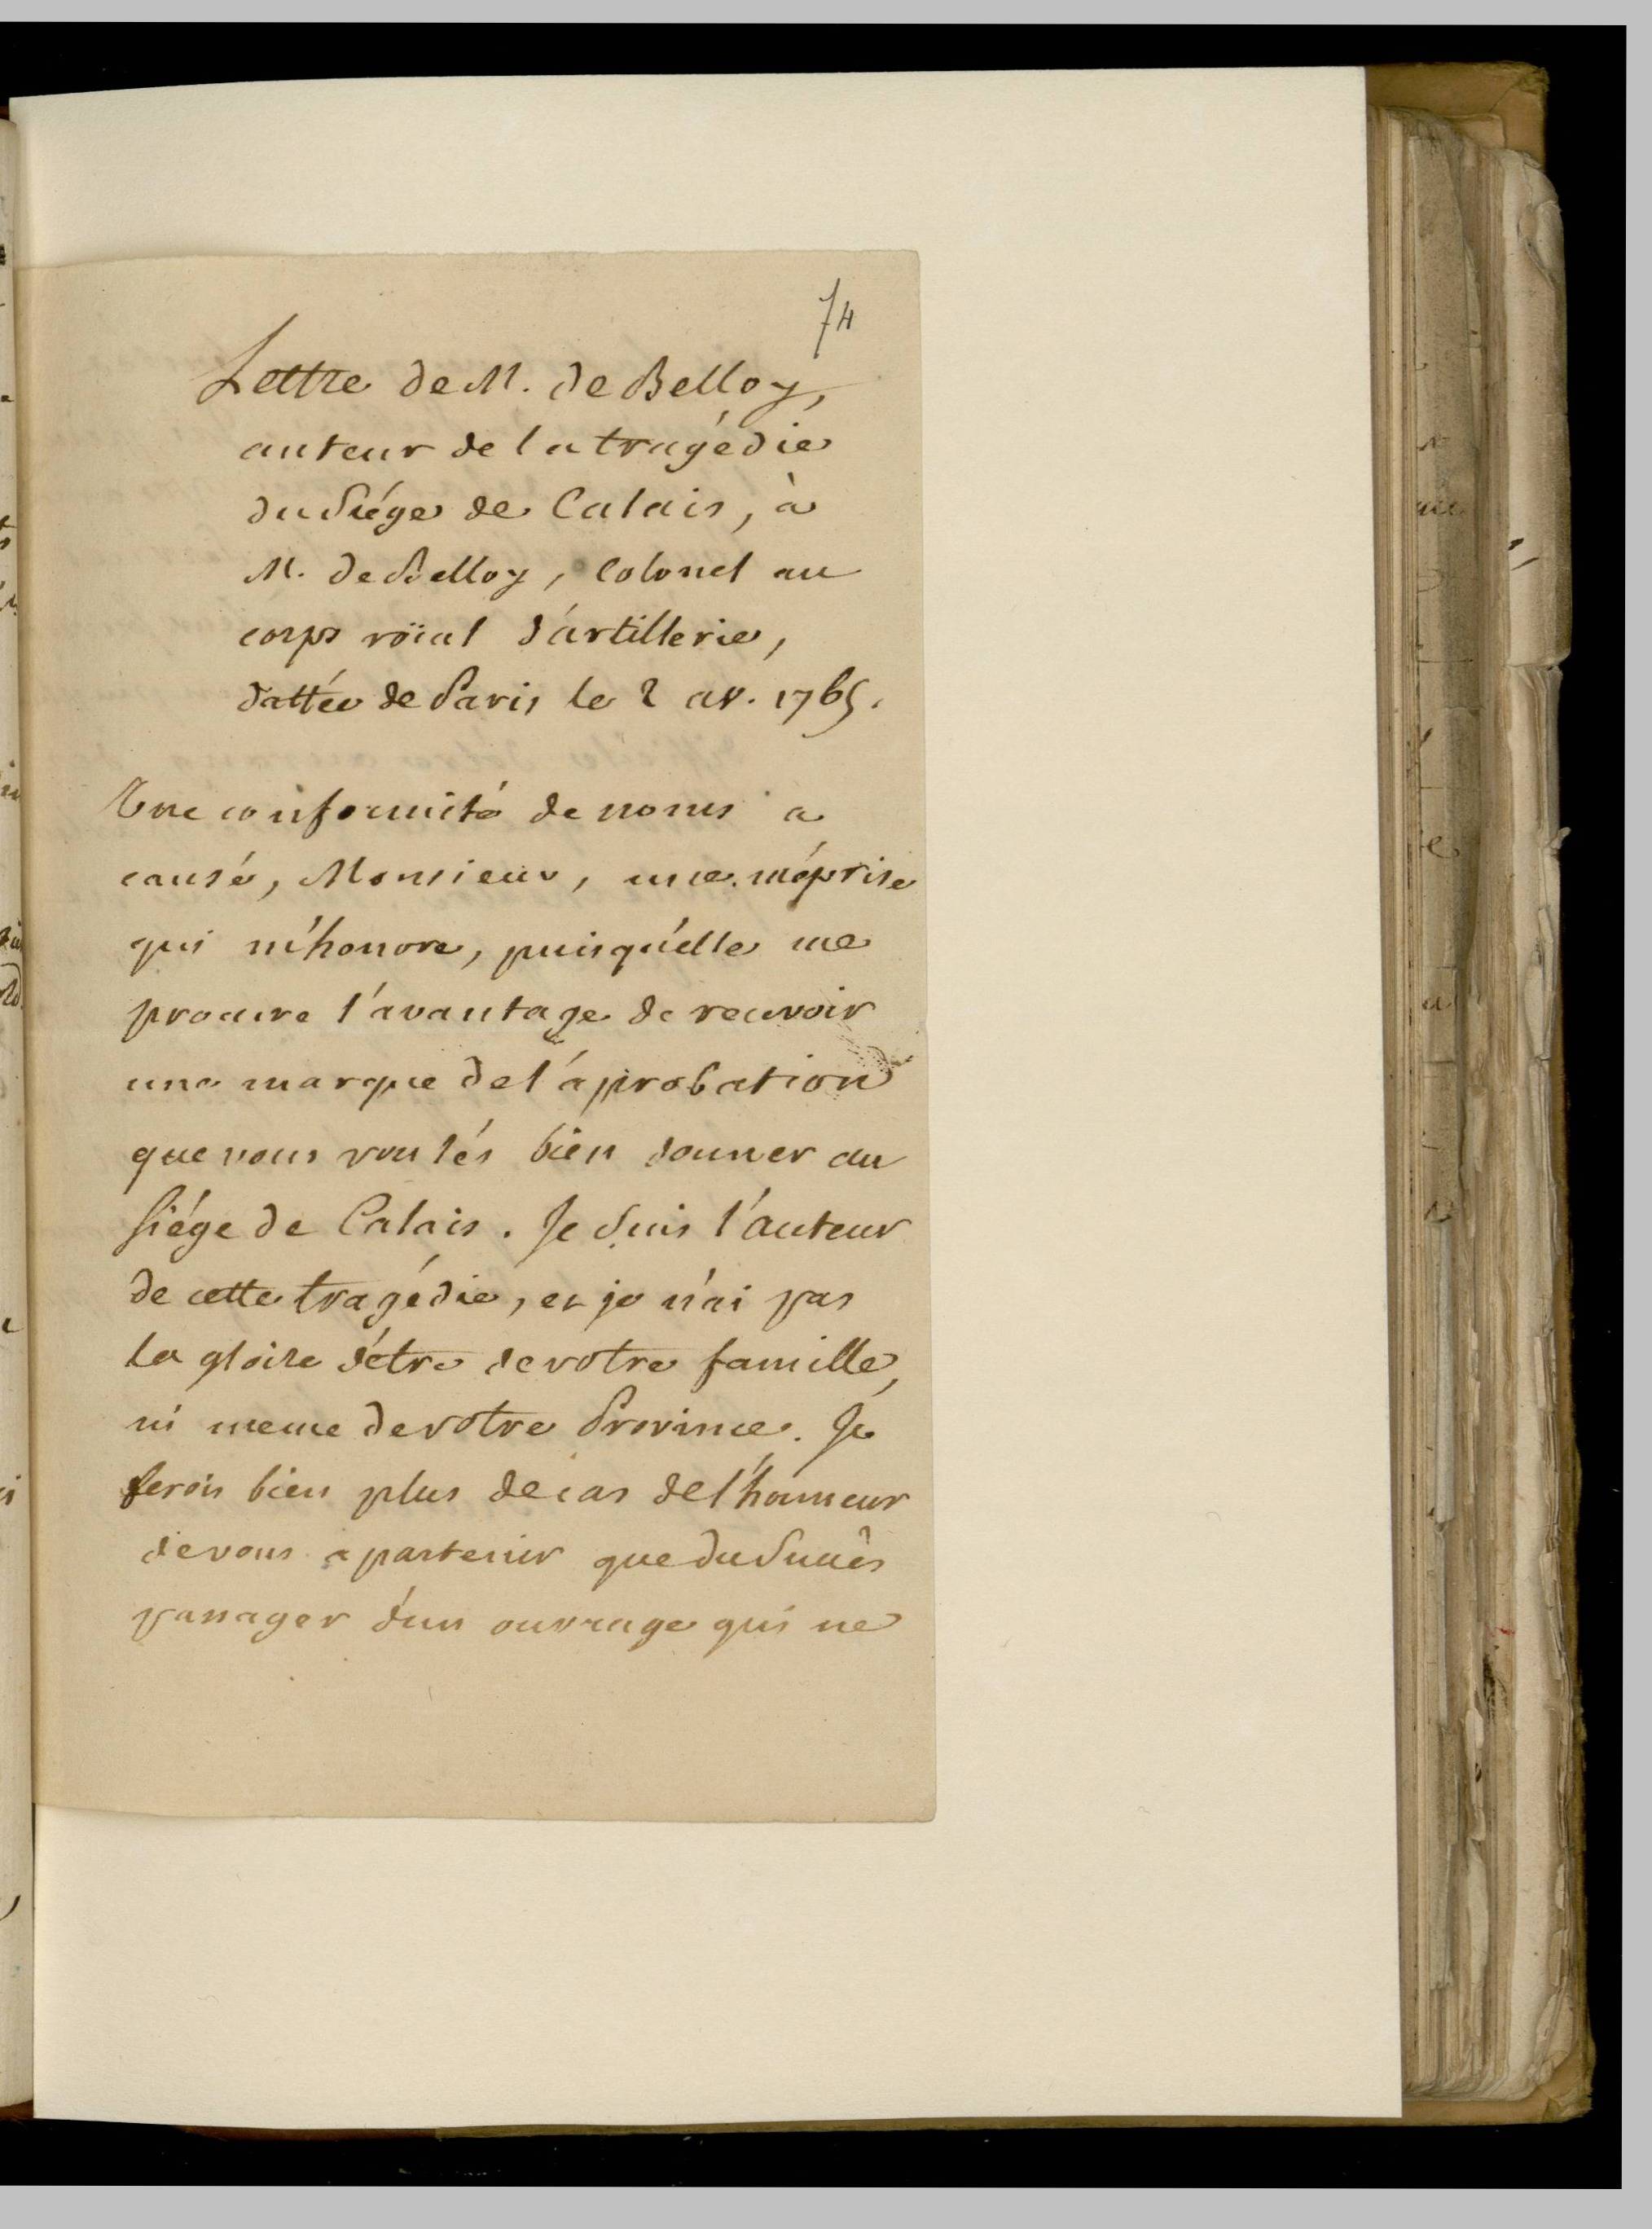 74
Lettre de M. de Belloy,
auteur de la tragédie
du Siége de Calais, à
M. de Belloy, Colonel au
corps roïal d'artillerie,
dattée de Paris le 2 av. 1765.
Une conformité de noms a
causé, Monsieur, une méprise
qui m'honore, puisqu'elle me
procure l'avantage de recevoir
une marque de l'aprobation
que vous voulés bien donner au
Siége de Calais. Je Suis l'auteur
de cette tragédie, et je n'ai pas
la gloire d'étre de votre famille,
ni meme de votre Province. Je
ferois bien plus de cas de l'honneur
de vous apartenir que du Succès
passager d'un ouvrage qui ne